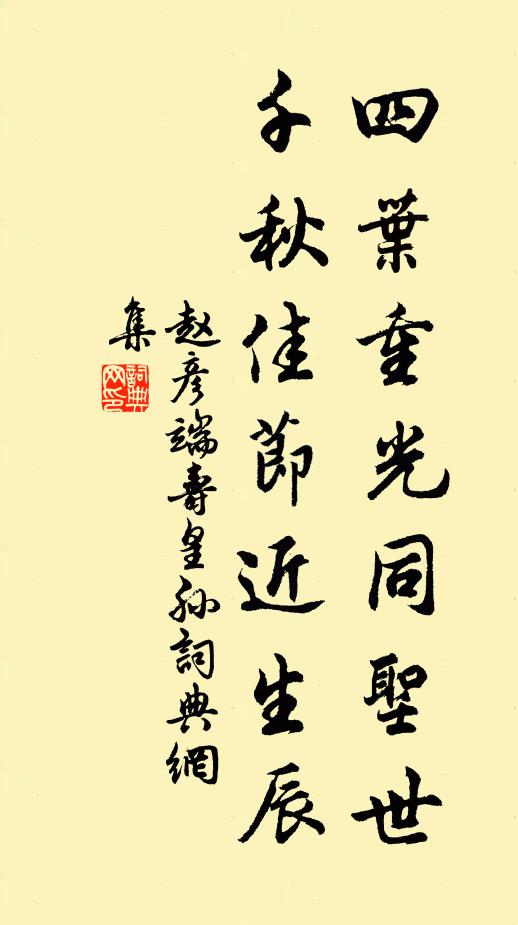 四葉重光同聖世
千秋佳節近生辰
赵彦端壽皇孙詞典網
集
詞典
网印